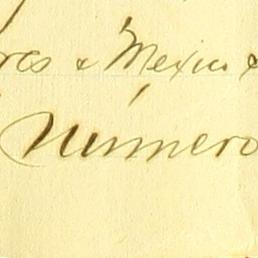 res & Mexico &
Número